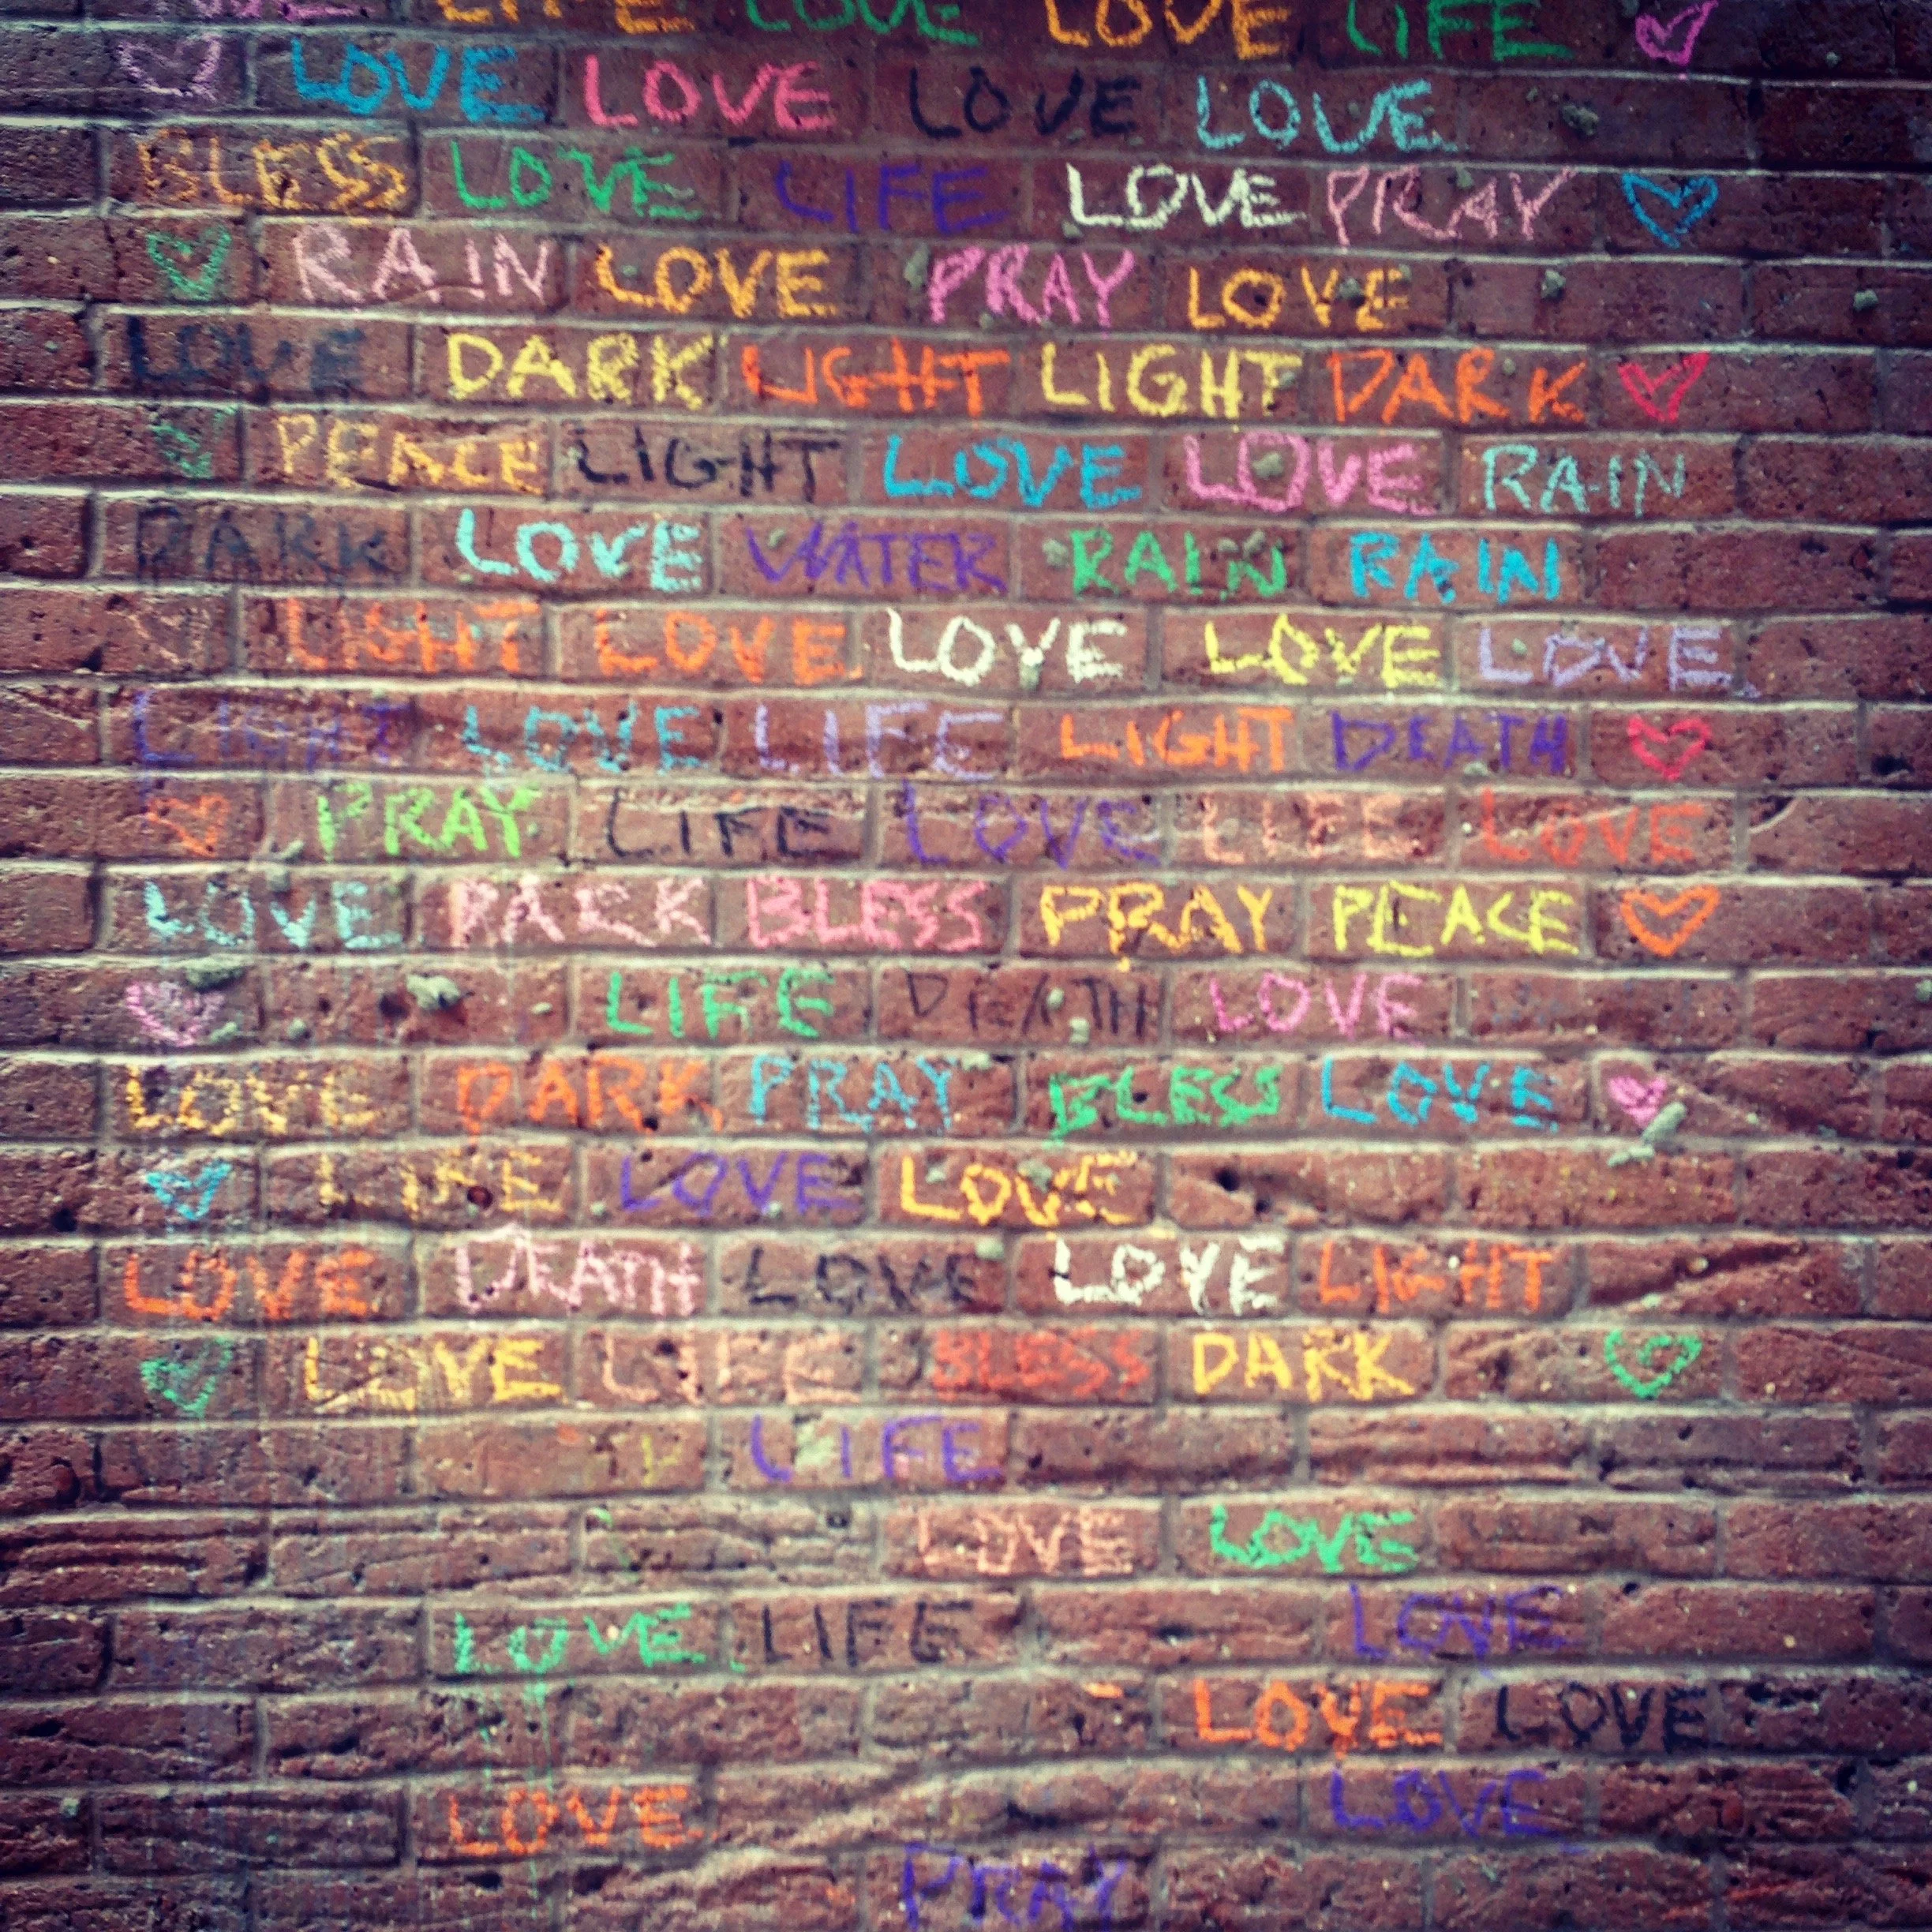 LIFE LOVE LOVE LIFE
LOVE LOVE LOVE LOVE
BLESS LOVE LIFE LOVE PRAY
RAIN LOVE PRAY LOVE
LOVE DARK LIGHT LIGHT DARK
PEACE LIGHT LOVE LOVE RAIN
DARK LOVE WATER RAIN RAIN
LIGHT LOVE LOVE LOVE LOVE
LIGHT LOVE LIFE LIGHT DEATH
PRAY LIFE LOVE LIFE LOVE
LOVE DARK BLESS PRAY PEACE
LIFE DEATH LOVE
LOVE DARK PRAY BLESS LOVE
LIFE LOVE LOVE
LOVE DEATH LOVE LOVE LIGHT
LOVE LIFE BLESS DARK
LIFE
LOVE LOVE
LOVE LIFE LOVE
LOVE LOVE
LOVE LOVE
PRAY